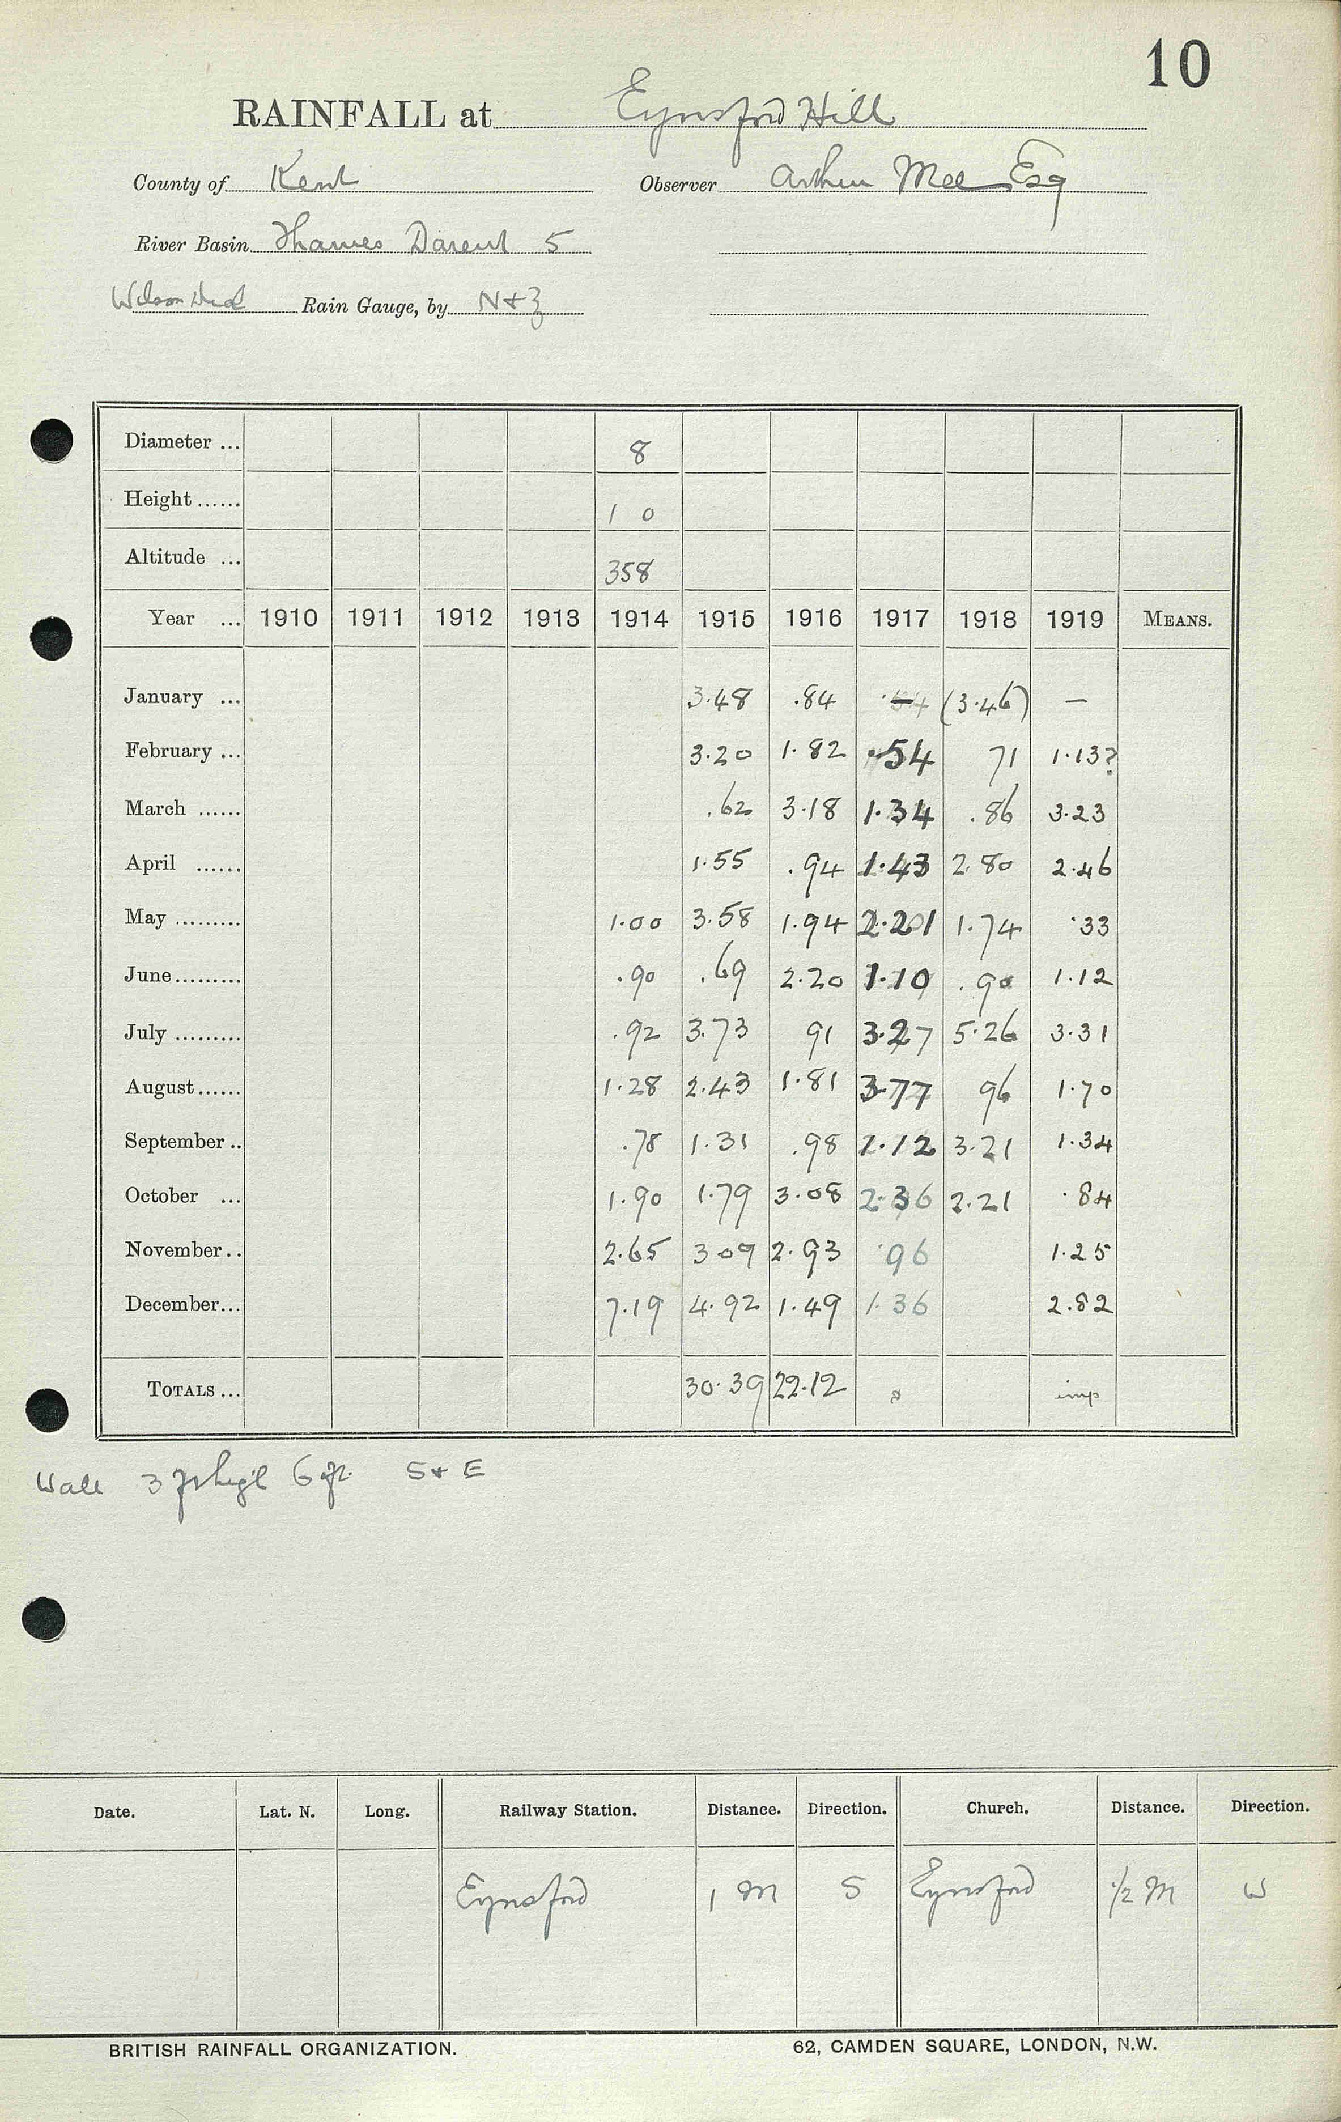 10
RAINFALL at Eynsford Hill
County of Kent Observer Arthur Mee Esq
River Basin Thames Darent 5
Rain Gauge, by N+Z
Diameter ... 8
Height ...... 1 0
Altitude ... 358
Year ... 1910 1911 1912 1913 1914 1915 1916 1917 1918 1919 MEANS.
January ... 3.48 .84 (3.46) —
February ... 3.20 1.82 .54 71 1.13?
March ...... .62 3.18 1.34 .86 3.23
April ...... 1.55 .94 1.43 2.80 2.46
May ......... 1.00 3.58 1.94 2.201 1.74 .33
June ......... .90 .69 2.20 1.10 .90 1.12
July ......... .92 3.73 91 3.27 5.26 3.31
August ...... 1.28 2.43 1.81 3.77 96 1.70
September .. .78 1.31 .98 1.12 3.21 1.34
October ... 1.90 1.79 3.08 2.36 2.21 .84
November .. 2.65 3 09 2.93 .96 1.25
December ... 7.19 4.92 1.49 1.36 2.82
TOTALS ... 30.39 22.12 imp
Wall 3 ft high 6 ft S + E
Date. Lat. N. Long. Railway Station. Distance. Direction. Church. Distance. Direction.
Eynsford 1 M S Eynsford 1/2 M W
BRITISH RAINFALL ORGANIZATION. 62, CAMDEN SQUARE, LONDON, N.W.